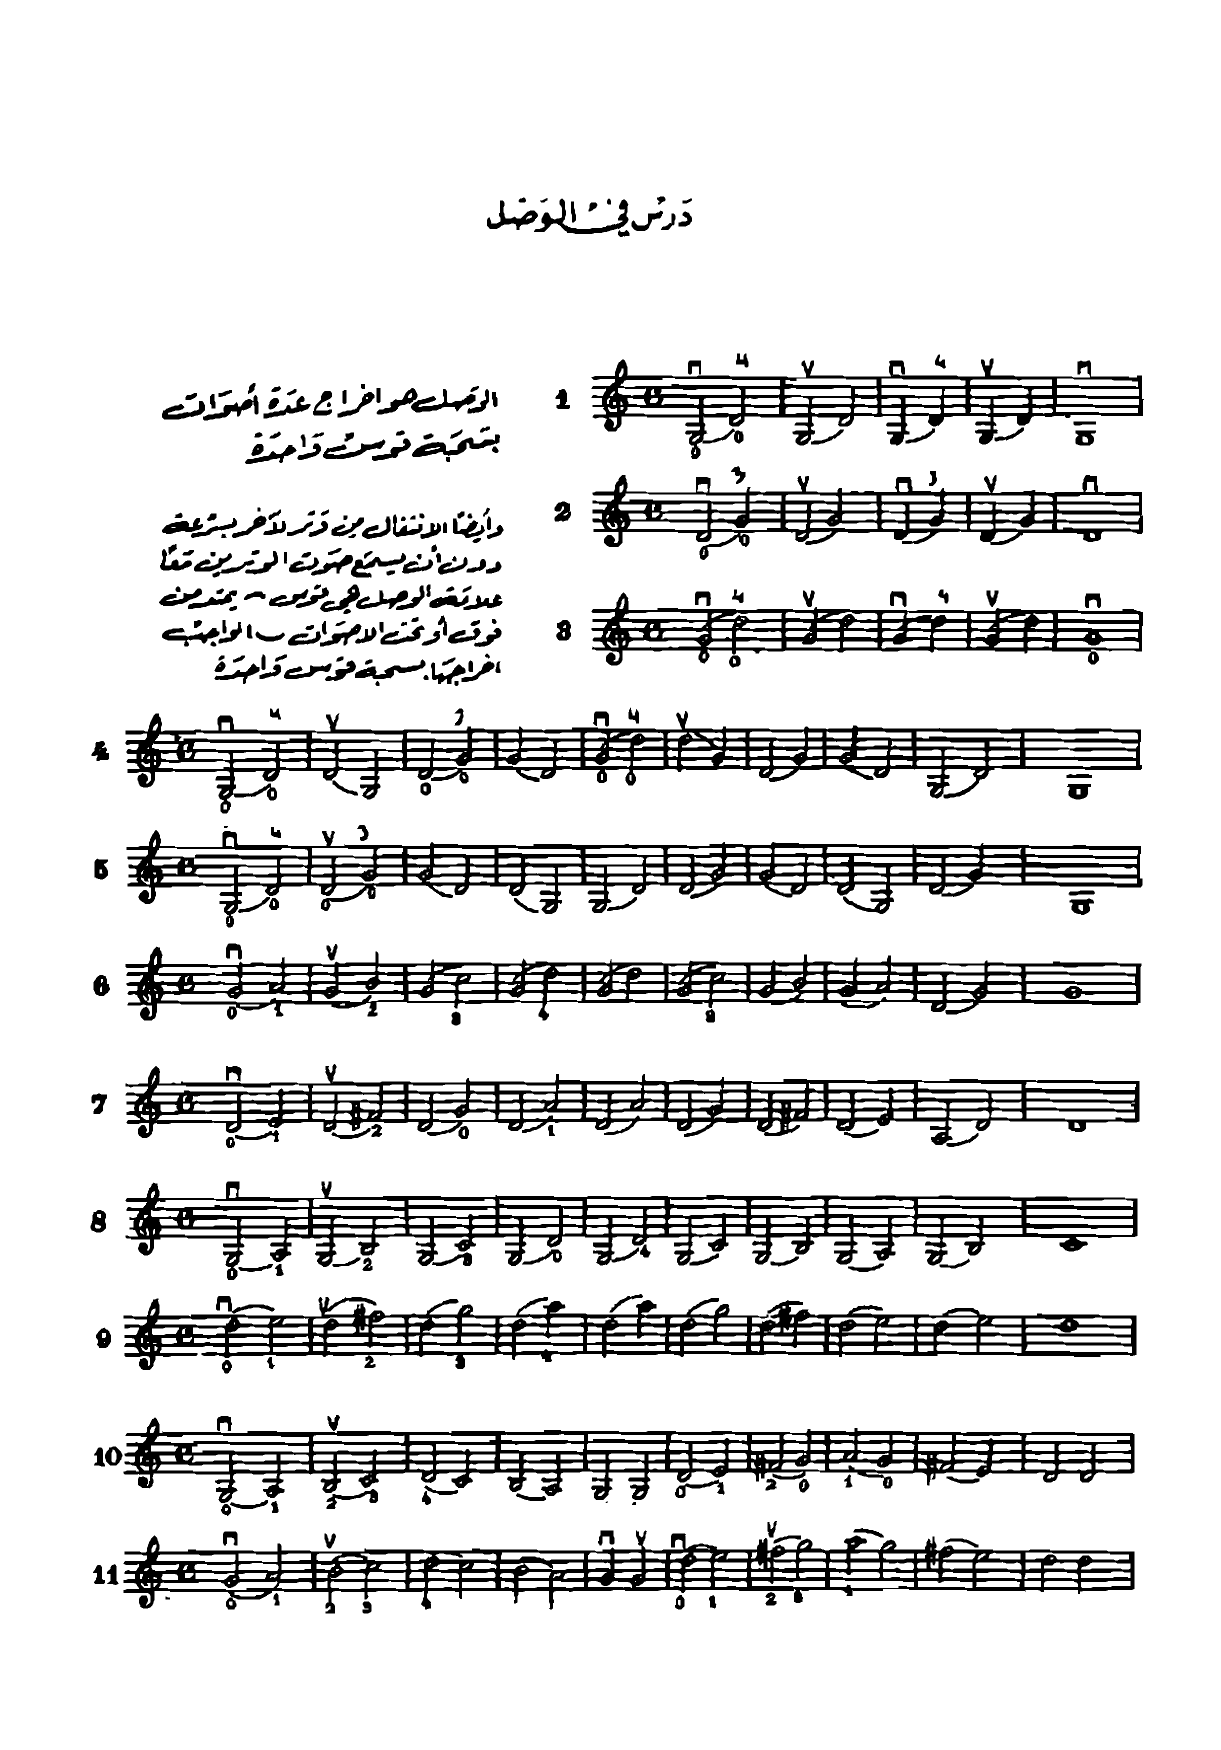 دَرسْ في الوَصْل
الوَصل هو اخراج عدَة أصوَات
بسَحبَة قوسْ وَاحدَة
وأيضًا الانتقال مِن وَتر لآخر بسْرعة
دون أن يسمَع صَوت الوترين مَعًا
علامَة الوصل هي قوس ⁀ يمتد من
فوق أو تحت الاصوَات ‿ الواجبْ
اخراجهَا بسحبة قوس وَاحدَة
1
2
3
4
5
6
7
8
9
10
11